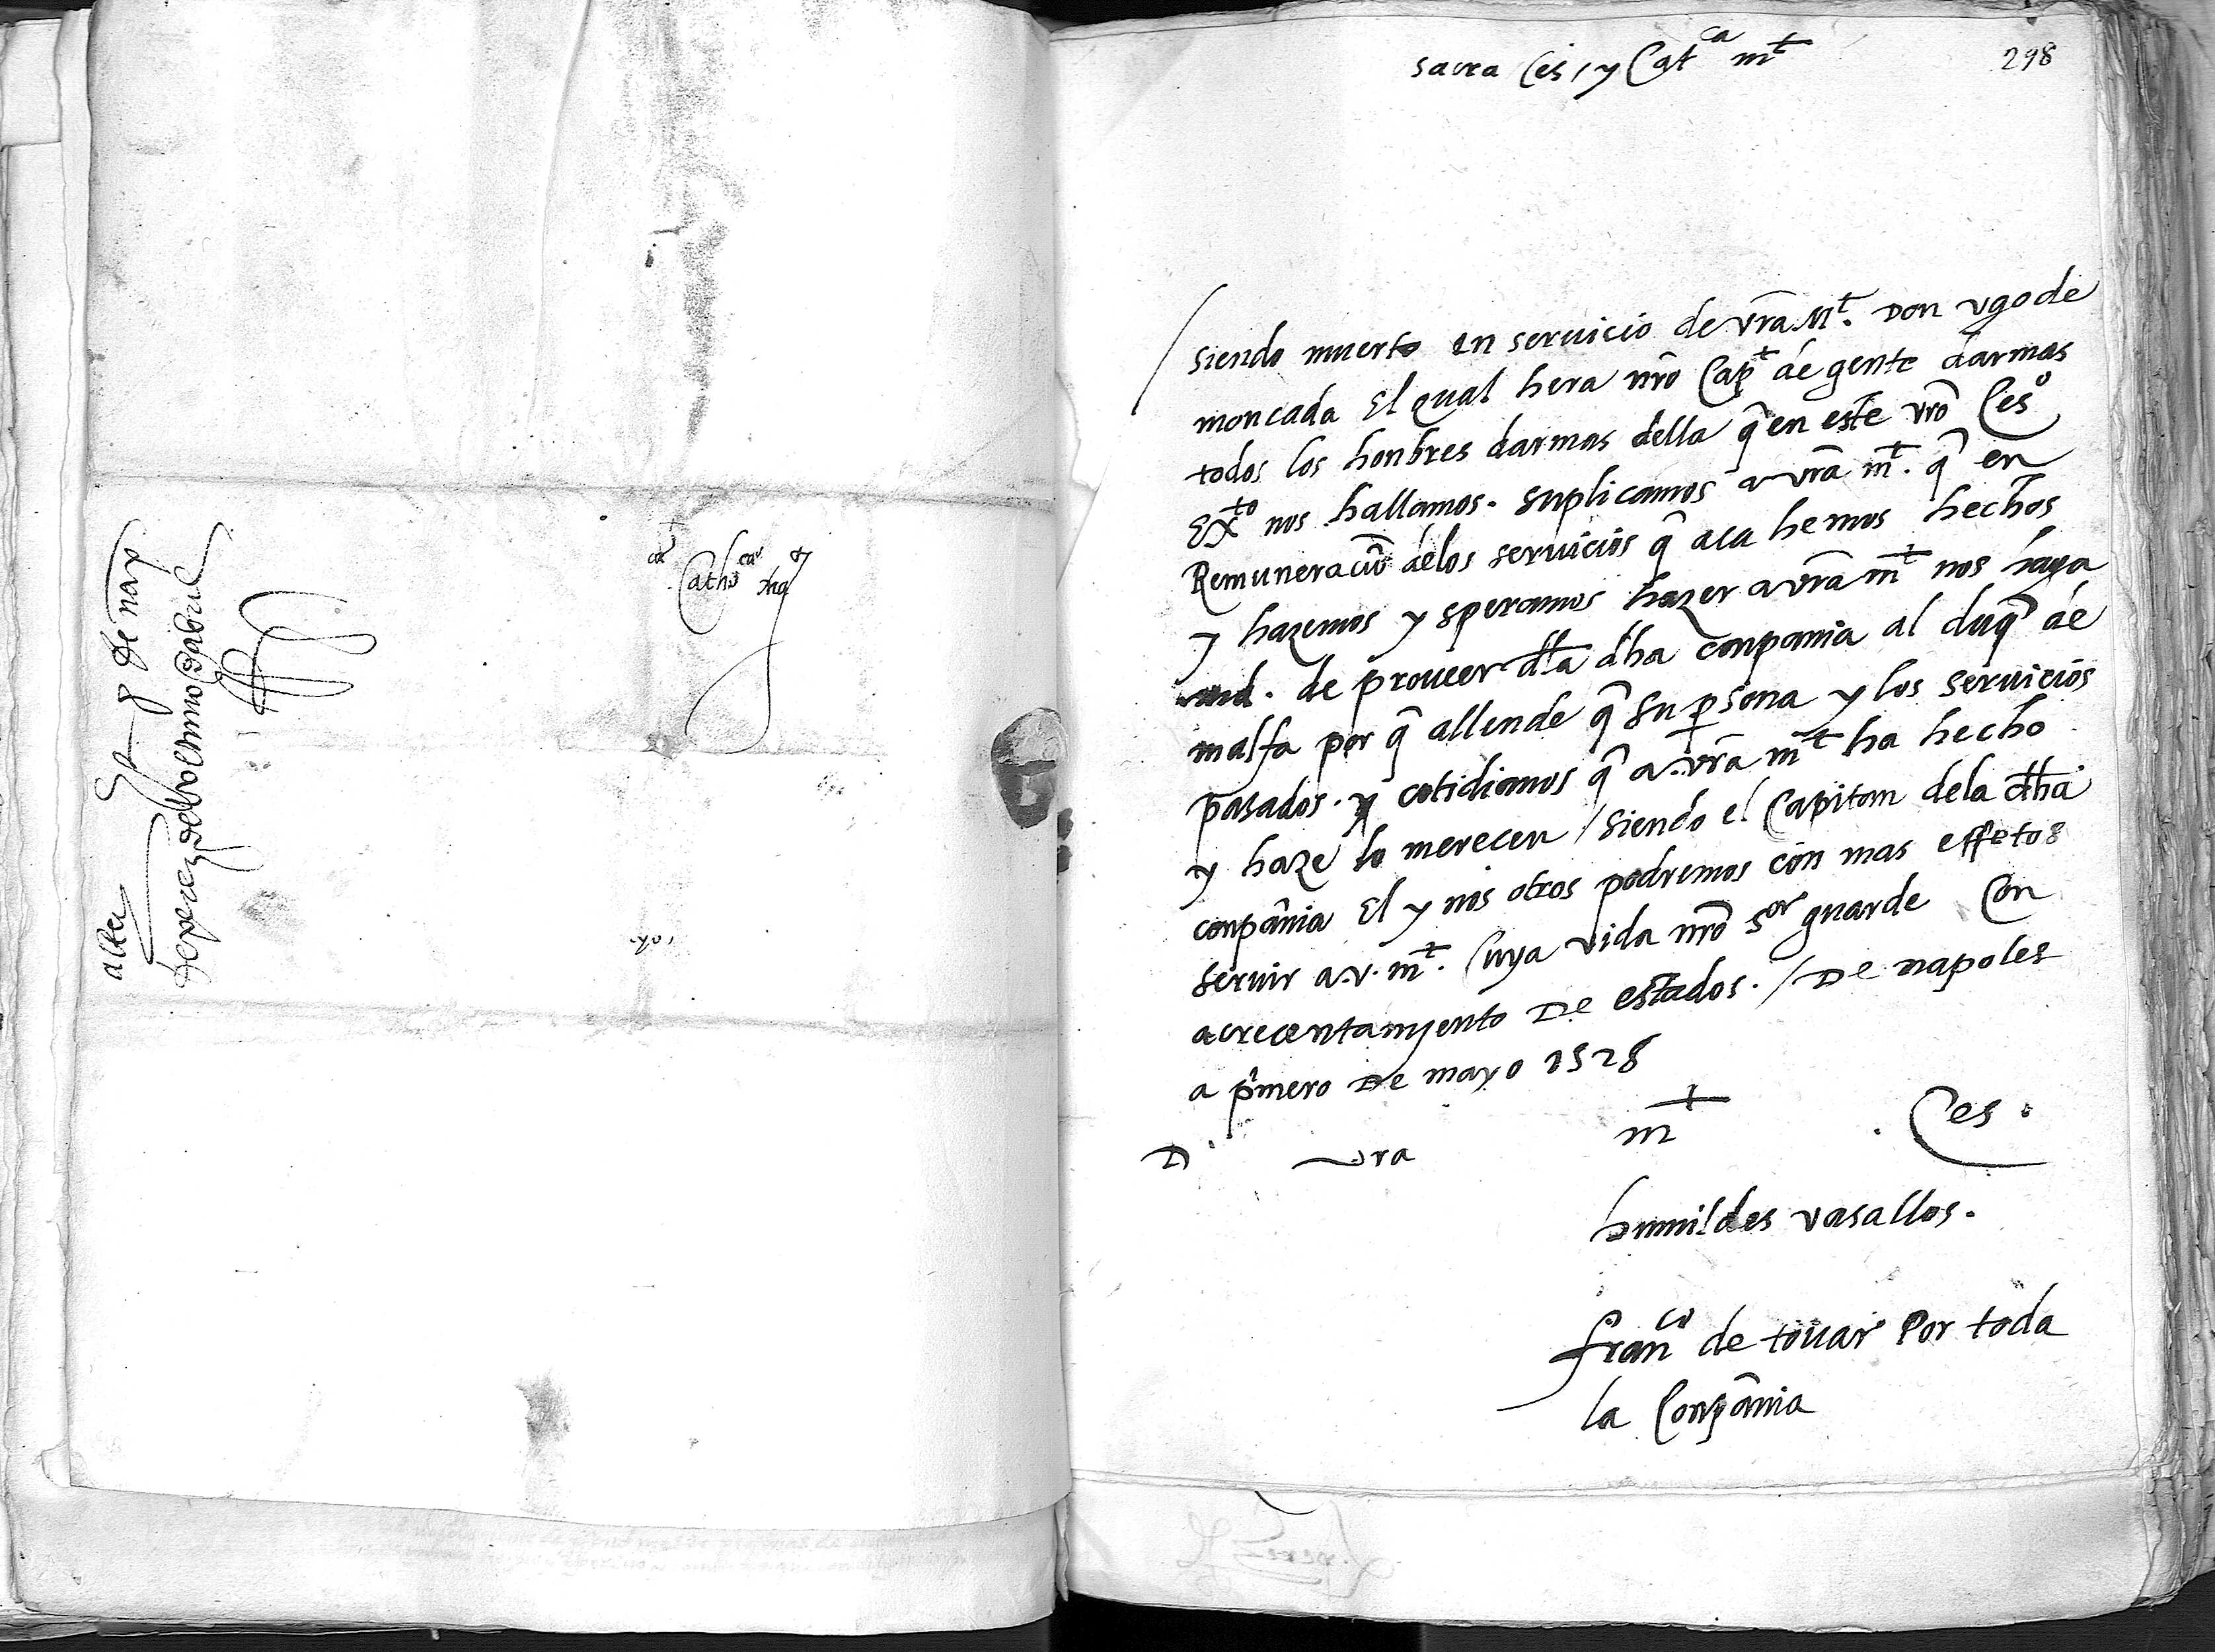 alter
de perez del ultimo dabril
Cathca Mag
298
sacra Ces, y Catca mt
siendo muerto en seruicio de vra Mt. Don vgo de
moncada El qual hera nro Capt de gente darmas
todos los honbres darmas della q̃ en este vro Ceso
Exto nos hallamos. suplicamos a vra mt. q̃ en
Remuneraciõ delos seruicios q̃ aca hemos hechos
y hazemos y speramos hazer a vra mt nos haga
md. de proueer dsta dha conpania al duq̃ de
malfa por q̃ allende q̃ su psona y los seruicios
pasados. y cotidianos q̃ a vra mt ha hecho
y haze lo merecen / siendo el Capitan dela dha
conpañia El y nos otros podremos con mas effetos
seruir a.v.mt. Cuya vida nro sor guarde Con
acrecentamyento De estados. / De napoles
a pmero De mayo 1528
D vra mt . Ces .
humildes vasallos.
franco de touar Por toda
la Conpañia